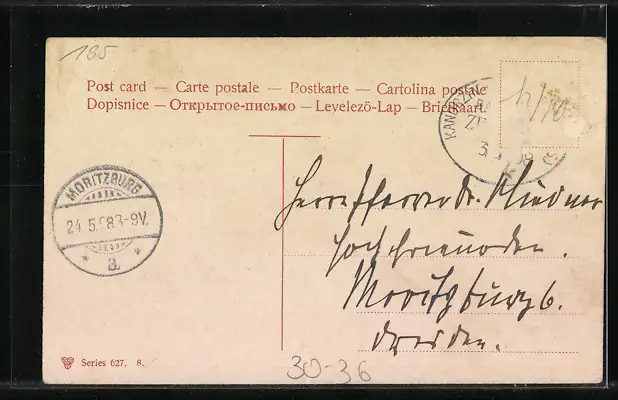 185
Post card — Carte postale — Postkarte — Cartolina postale
Dopisnice — Открытое-письмо — Levelező-Lap — Briefkaart
h/10
MORITZBURG
24.5.08 8-9V.
* a. *
Herrn Pfarrer Dr.
Moritzburg b.
Dresden.
Series 627. 8.
30-36